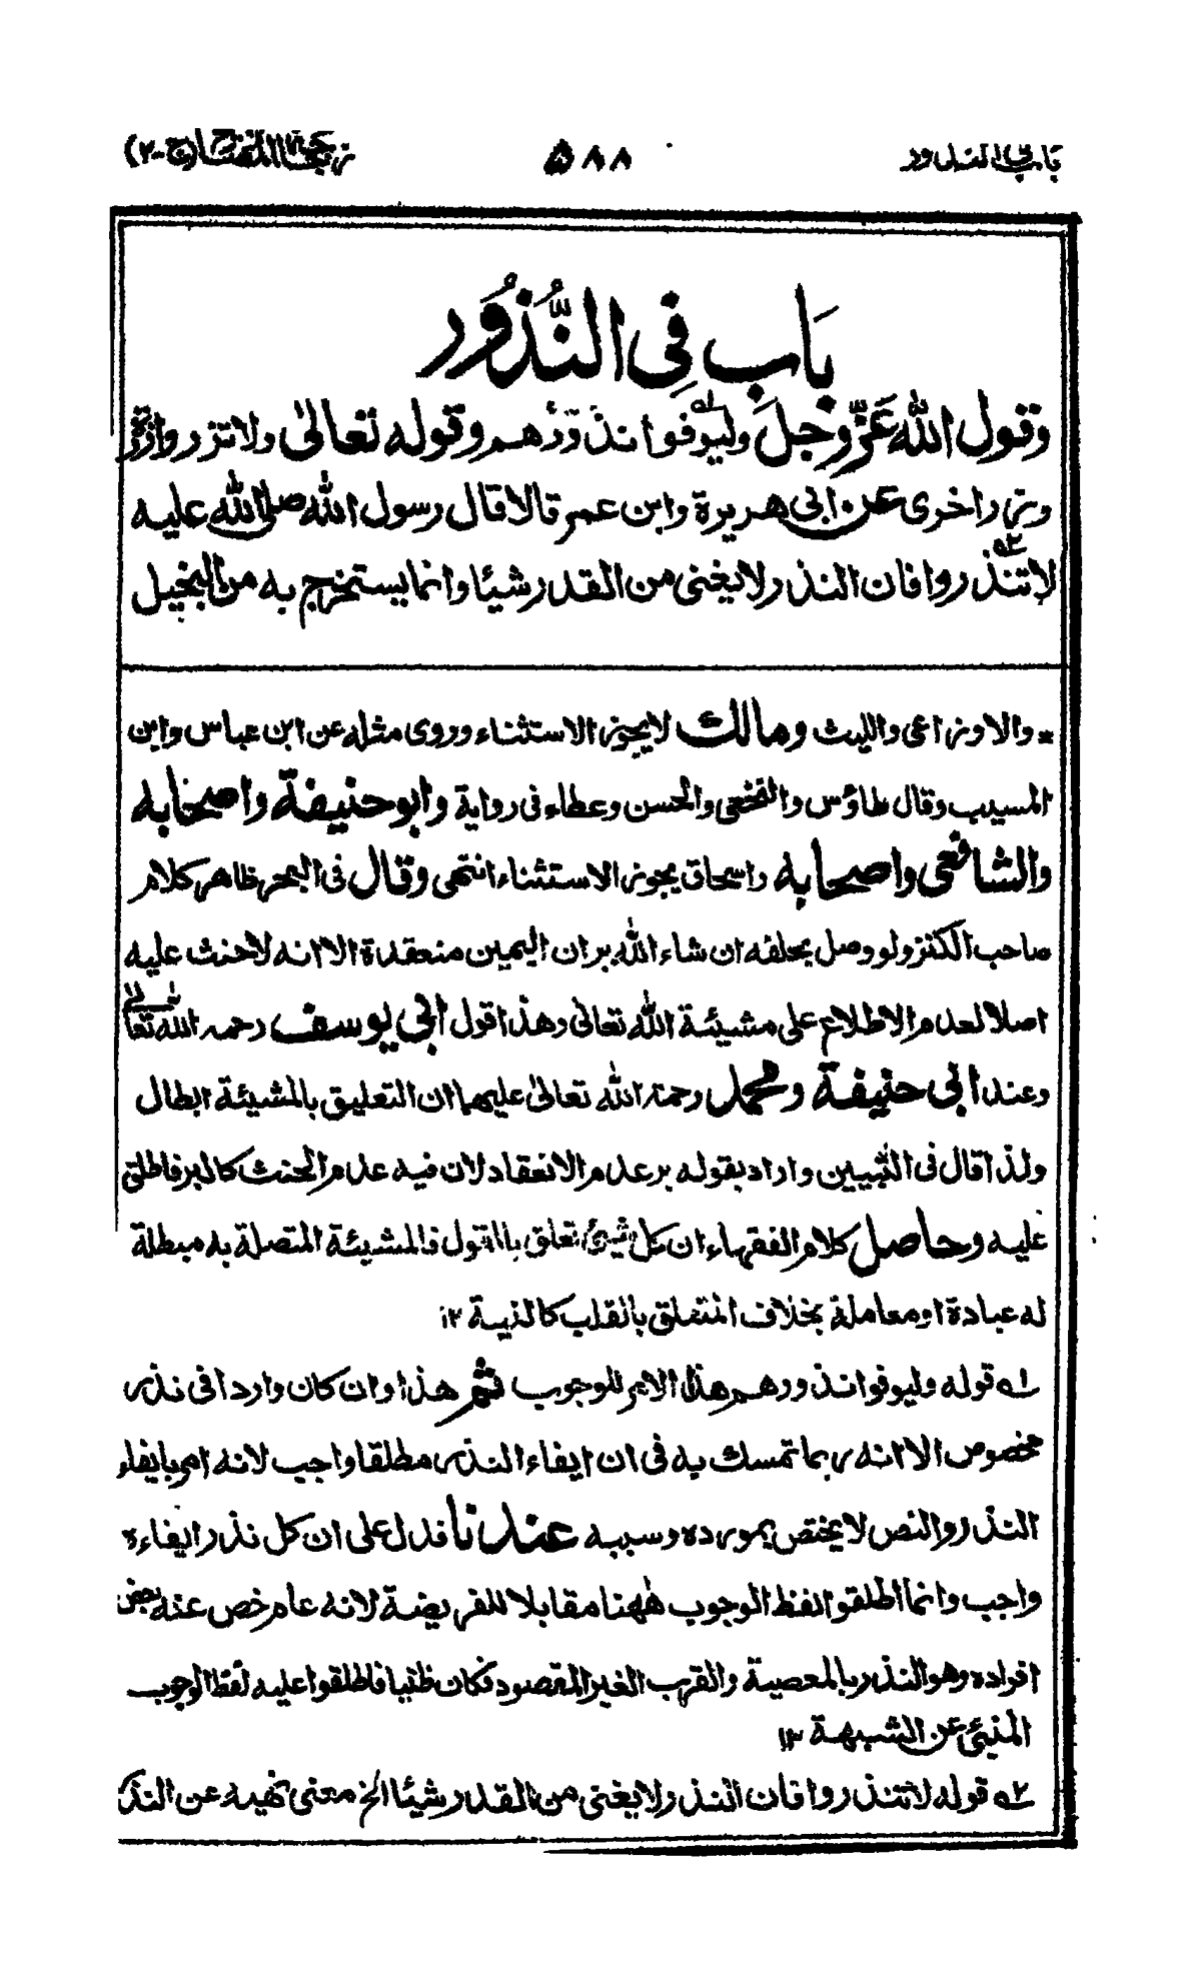 باب في النذور
۵۸۸
زجاجة المصابيح (ج-۲)
بَاب فِي النُّذُوْر
وقول الله عَزَّ وجلَ وليوفوا نذورهم وقوله تعالىٰ ولا تزر وازرة
وزر اخرى عن ابي هريرة وابن عمر قالا قال رسول الله صلى الله عليه
لا تنذروا فان النذر لا يغنى من القدر شيئا وانما يستخرج به من البخيل
* والاوزاعى والليث ومالك لا يجيز الاستثناء وروى مثله عن ابن عباس وابن
المسيب وقال طاؤس والنخعى والحسن وعطاء فى رواية وابو حنيفة واصحابه
والشافعى واصحابه واسحاق يجوز الاستثناء انتهى وقال فى البحر ظاهر كلام
صاحب الكنز ولو وصل بحلفه ان شاء الله بر ان اليمين منعقدة الا انه لا حنث عليه
اصلا لعدم الاطلاع على مشيئة الله تعالىٰ وهذا قول ابى يوسف رحمه الله تعالىٰ
وعند ابى حنيفة ومحمد رحمة الله تعالىٰ عليهما ان التعليق بالمشيئة ابطال
ولذا قال فى التبيين واراد بقوله بر عدم الانعقاد لان فيه عدم الحنث كالبر فاطلق
عليه وحاصل كلام الفقهاء ان كل شيئ تعلق بالقول فالمشيئة المتصلة به مبطلة
له عبادة او معاملة بخلاف المتعلق بالقلب كالنية ۱۲
۱ه قوله وليوفوا نذورهم هذا الامر للوجوب ثم هذا وان كان واردا فى نذر
مخصوص الا انه ربما تمسك به فى ان ايفاء النذر مطلقا واجب لانه امر بايفاء
النذر والنص لا يختص بمورده وسببه عندنا فدل على ان كل نذر ايفاءه
واجب وانما اطلقوا لفظ الوجوب هٰهنا مقابلا للفريضة لانه عام رخص عنه بعض
افراده وهو النذر بالمعصية والقرب الغير المقصود فكان ظنيا فاطلقوا عليه لفظ الوجوب
المنبئ عن الشبهة ۱۲
۲ه قوله لا تنذروا فان النذر لا يغنى من القدر شيئا الخ معنى نهيه عن النذر